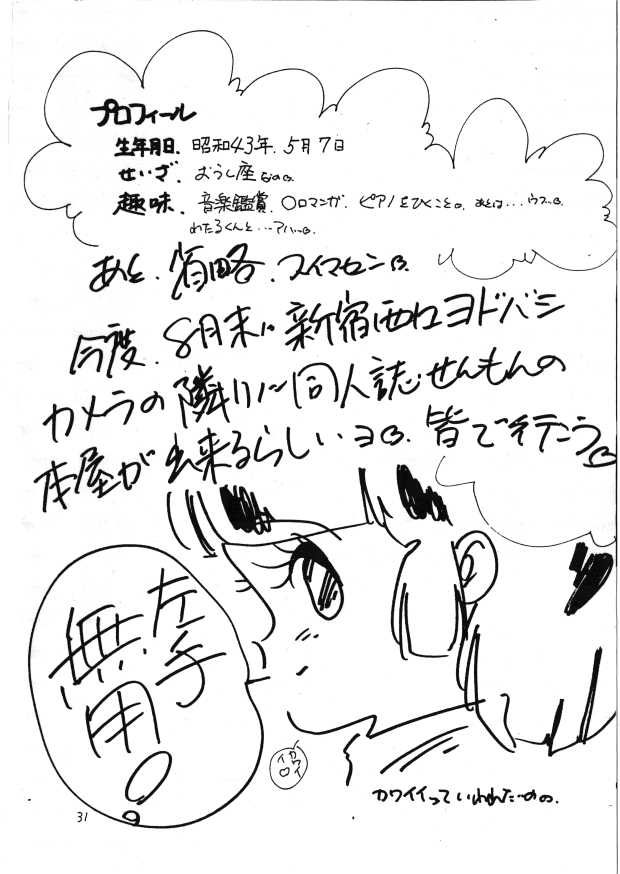 プロフィール
生年月日. 昭和43年. 5月7日
せいざ. おうし座なの。
趣味. 音楽鑑賞. ○ロマンガ. ピアノをひくこと。あとは…ウフッ。
わたるくんと…アハッ。
あと. 省略. スイマセン。
今度. 8月末に新宿西口ヨドバシ
カメラの隣りに同人誌せんもんの
本屋が出来るらしいヨ。皆で行こう。
左手
無用
カワイイ
カワイイっていわれた
31